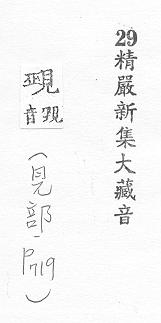 29精嚴新集大藏音
音現
(見部.P719)